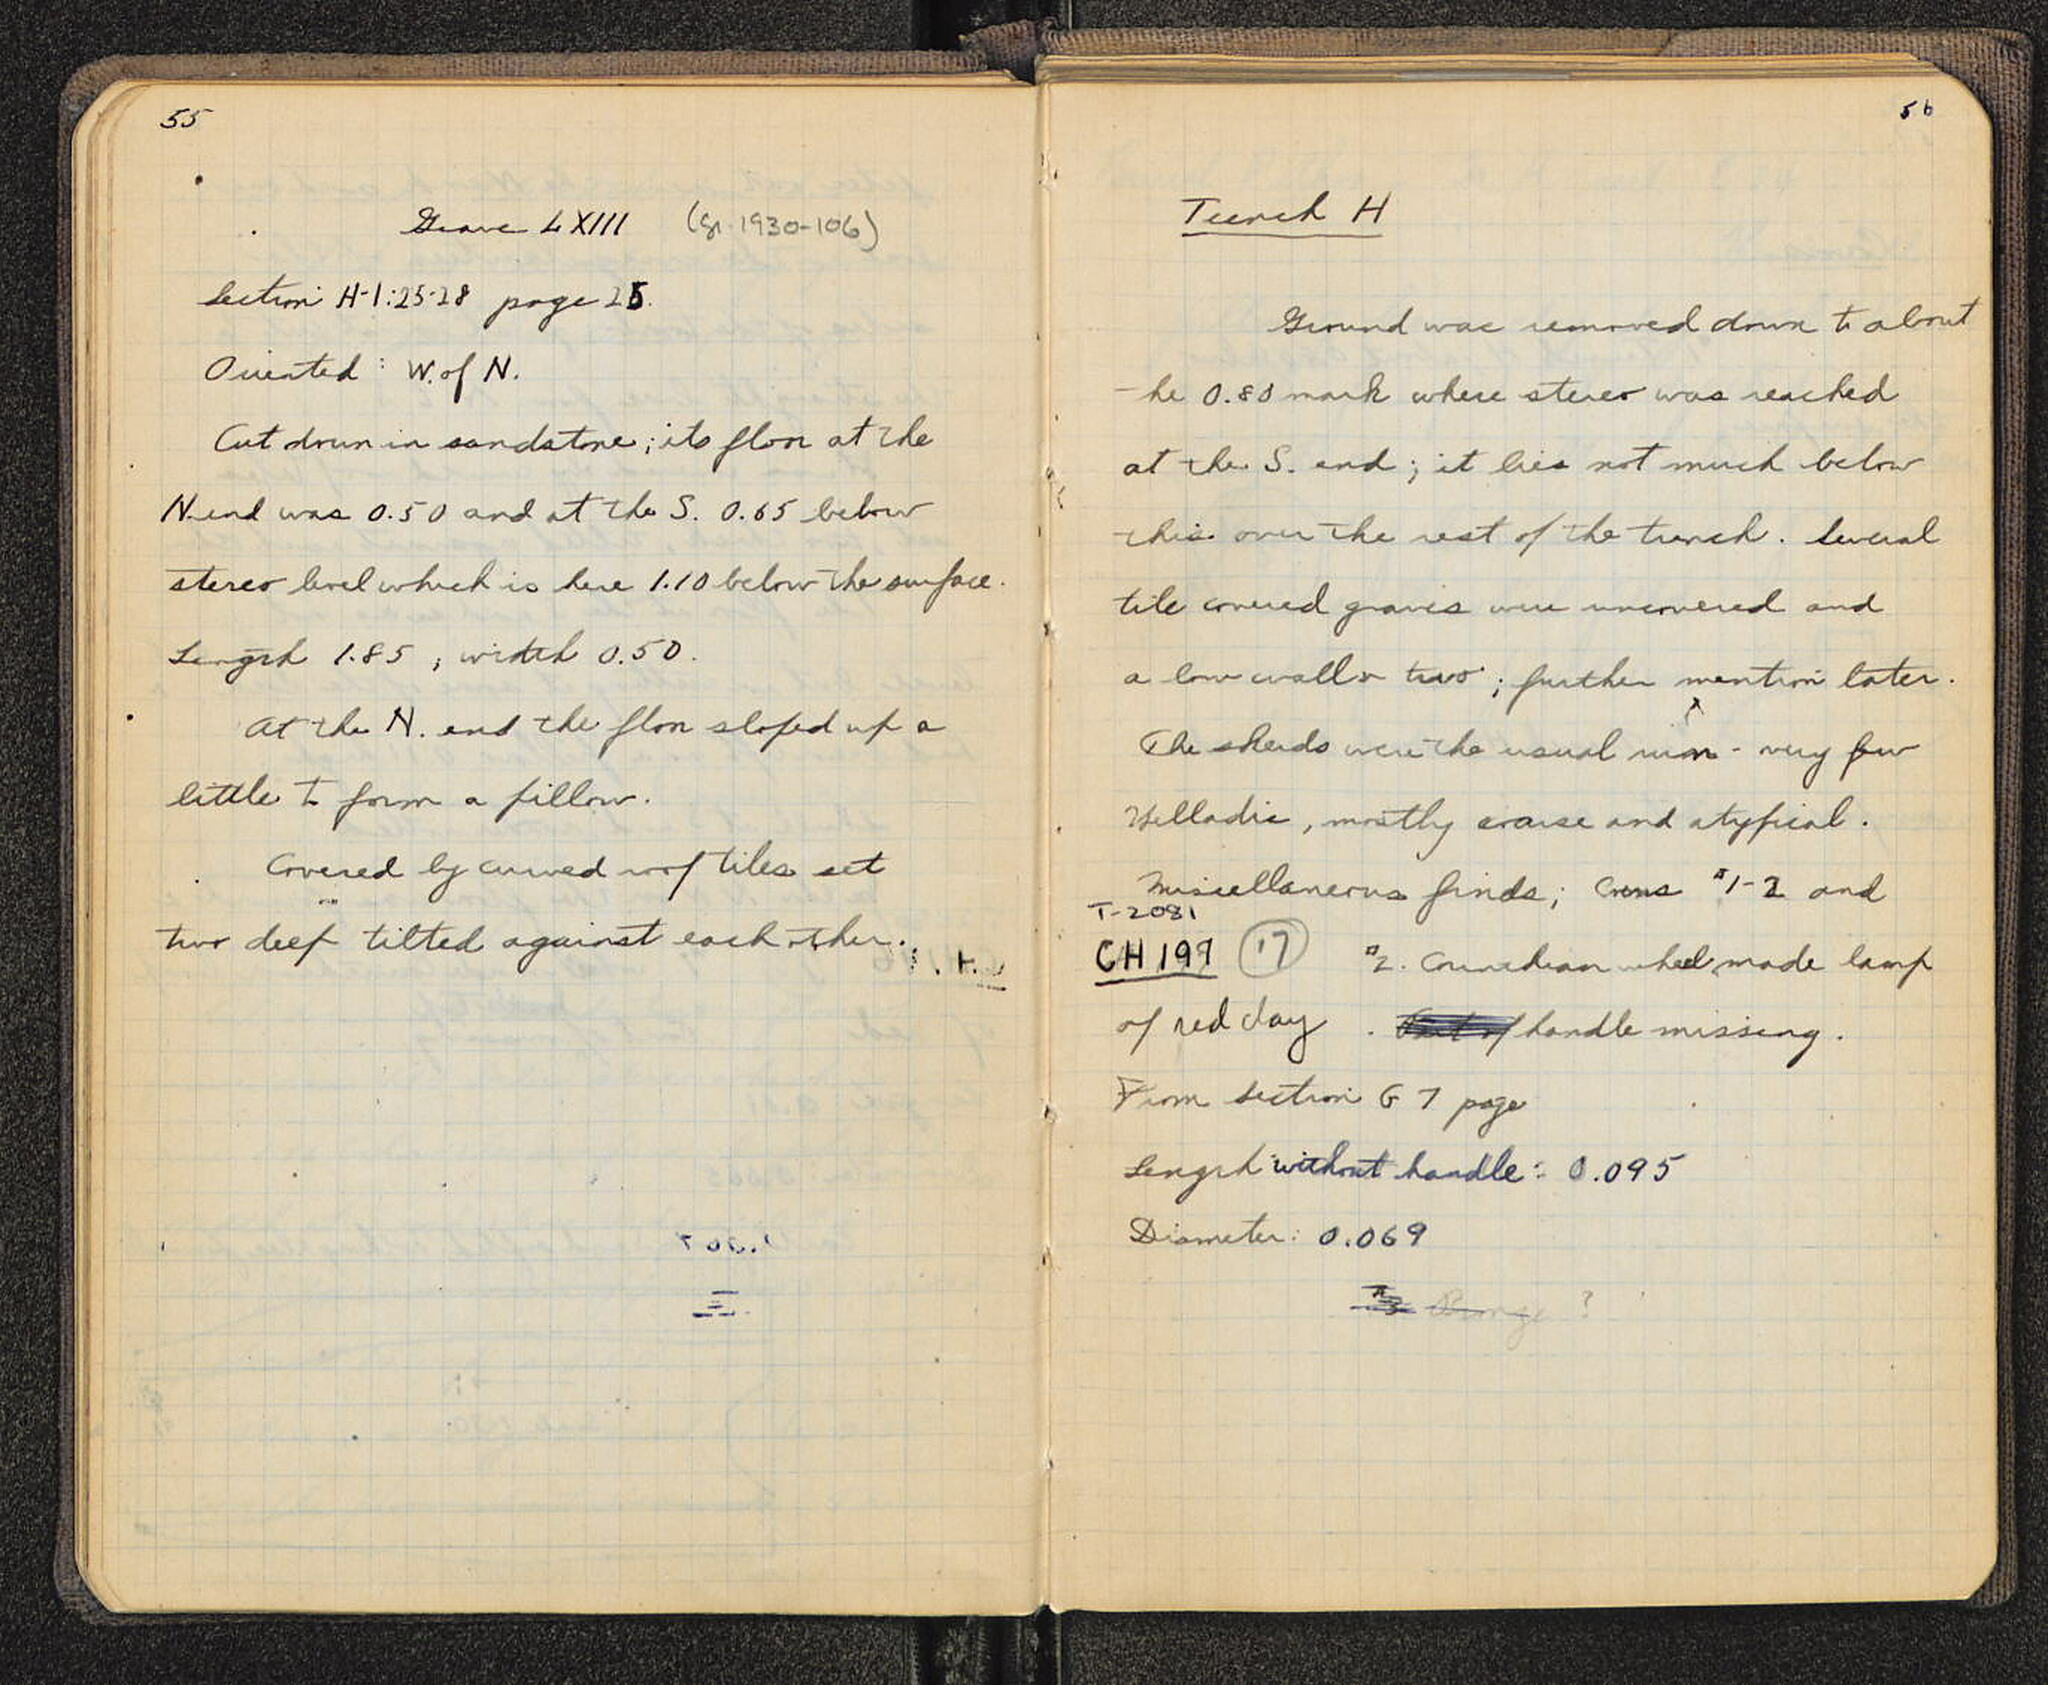 55
Grave LXIII (Gr. 1930-106)
Section H-1:25-28 page 25.
Oriented: W. of N.
Cut down in sandstone; its floor at the
N. end was 0.50 and at the S. 0.65 below
stereo level which is here 1.10 below the surface.
Length 1.85, width 0.50.
At the N. end the floor sloped up a
little to form a pillow.
Covered by curved roof tiles set
two deep tilted against each other.
56
Trench H
Ground was removed down to about
the 0.80 mark where stereo was reached
at the S. end; it lies not much below
this over the rest of the trench. Several
tile covered graves were uncovered and
a low wall or two; further mention later.
The sherds were the usual run - very few
Helladic, mostly coarse and atypical.
Miscellaneous finds; Coins #1-2 and
T-2081
CH 197 17 #2. Corinthian wheel made lamp
of red clay. Part of handle missing.
From section G 7 page
Length without handle: 0.095
Diameter: 0.069
#3 Bronze ?